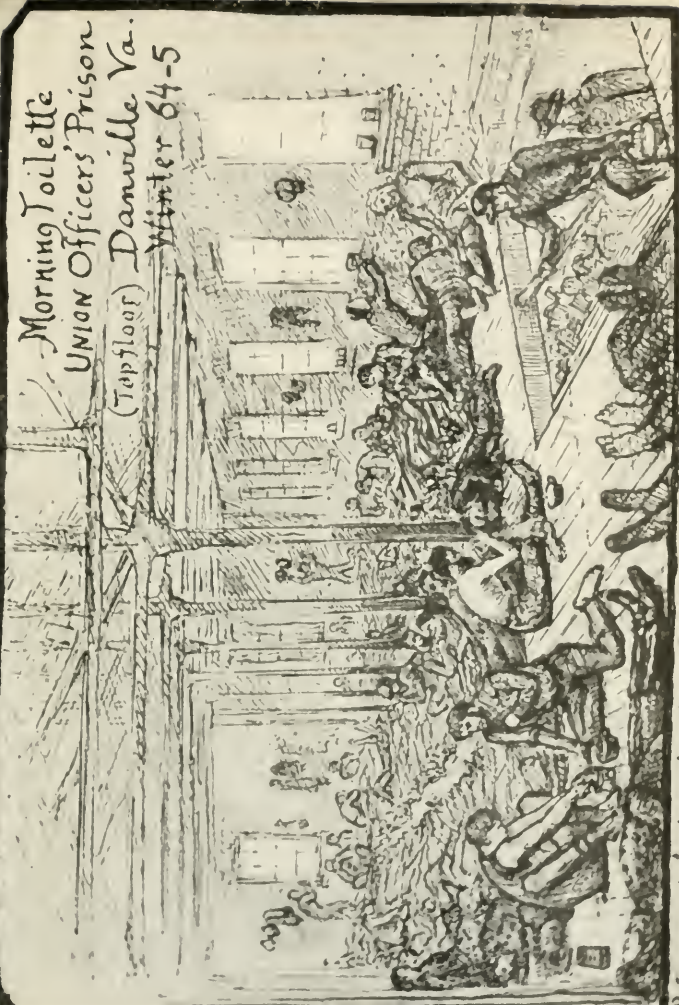 Morning Toilette
UNION Officers' Prison
(Topfloor) Danville Va.
Winter 64-5